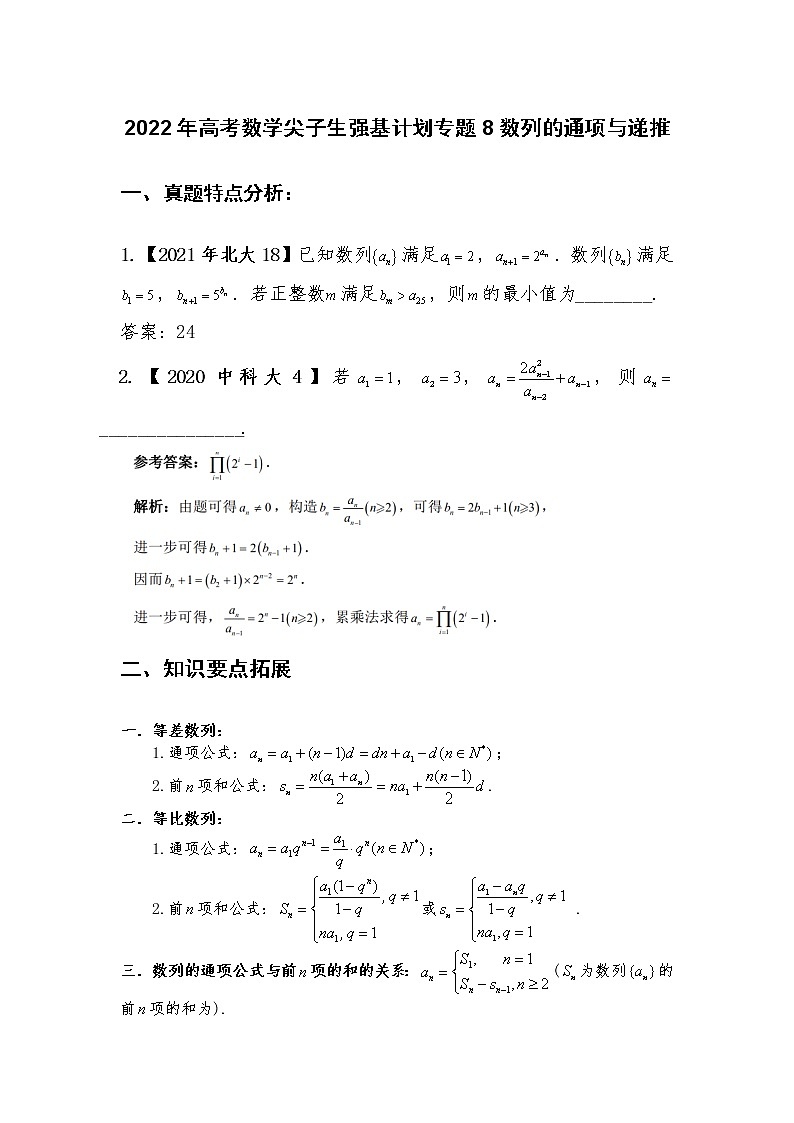 2022年高考数学尖子生强基计划专题8数列的通项与递推
一、真题特点分析：
1.【2021年北大18】已知数列{aₙ}满足a₁ = 2，aₙ₊₁ = 2^{aₙ}．数列{bₙ}满足
b₁ = 5，bₙ₊₁ = 5^{bₙ}．若正整数m满足b_m > a₂₅，则m的最小值为________.
答案：24
2.【2020中科大4】若a₁ = 1，a₂ = 3，aₙ = \frac{2a_{n-1}^2}{a_{n-2}} + aₙ₋₁，则aₙ =
_______________.
参考答案：\prod_{i=1}^{n}(2^i − 1)．
解析：由题可得aₙ ≠ 0，构造bₙ = \frac{a_n}{a_{n-1}}(n⩾2)，可得bₙ = 2bₙ₋₁ + 1(n⩾3)，
进一步可得bₙ + 1 = 2(bₙ₋₁ + 1)．
因而bₙ + 1 = (b₂ + 1) × 2^{n−2} = 2^n．
进一步可得，\frac{a_n}{a_{n-1}} = 2^n − 1(n⩾2)，累乘法求得aₙ = \prod_{i=1}^{n}(2^i − 1)．
二、知识要点拓展
一．等差数列：
1.通项公式：aₙ = a₁ + (n − 1)d = dn + a₁ − d(n ∈ N^*)；
2.前n项和公式：sₙ = \frac{n(a_1 + a_n)}{2} = na₁ + \frac{n(n-1)}{2}d．
二．等比数列：
1.通项公式：aₙ = a₁q^{n−1} = \frac{a_1}{q} · q^n(n ∈ N^*)；
2.前n项和公式：Sₙ = \begin{cases} \frac{a_1(1-q^n)}{1-q}, q ≠ 1 \\ na_1, q = 1 \end{cases}或sₙ = \begin{cases} \frac{a_1 - a_nq}{1-q}, q ≠ 1 \\ na_1, q = 1 \end{cases}．
三．数列的通项公式与前n项的和的关系：aₙ = \begin{cases} S_1, n = 1 \\ S_n - s_{n-1}, n ≥ 2 \end{cases}(Sₙ为数列{aₙ}的
前n项的和为).